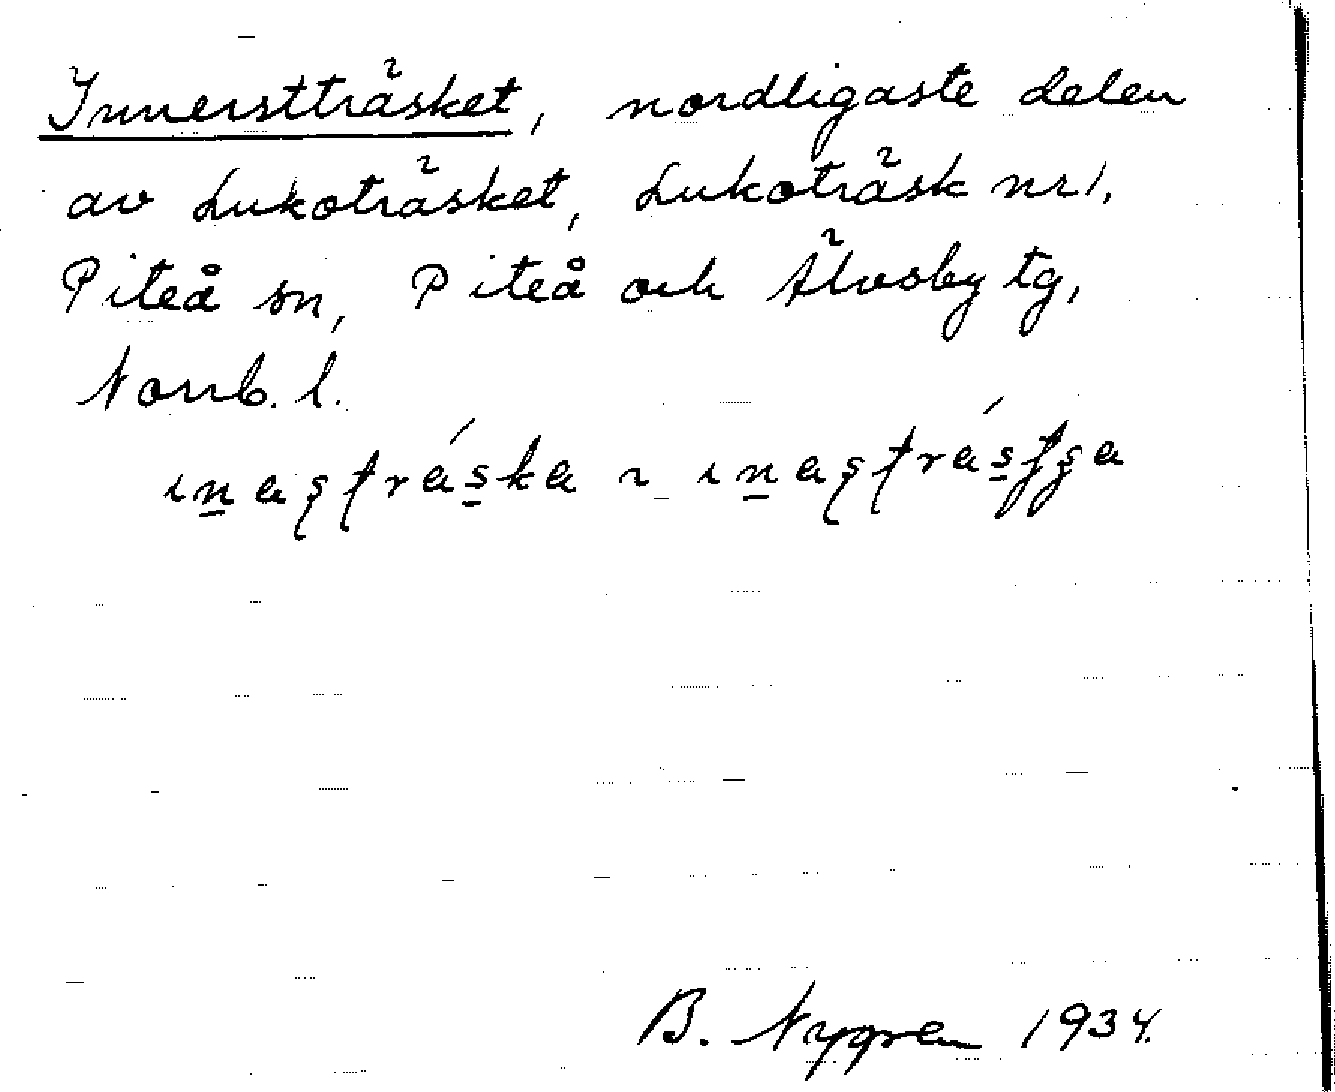 Innerstträsket, nordligaste delen
av Lukoträsket, Lukoträsk nr 1.
Piteå sn, Piteå och Älvsby tg,
Norrb. l.
B. Nygren 1934.